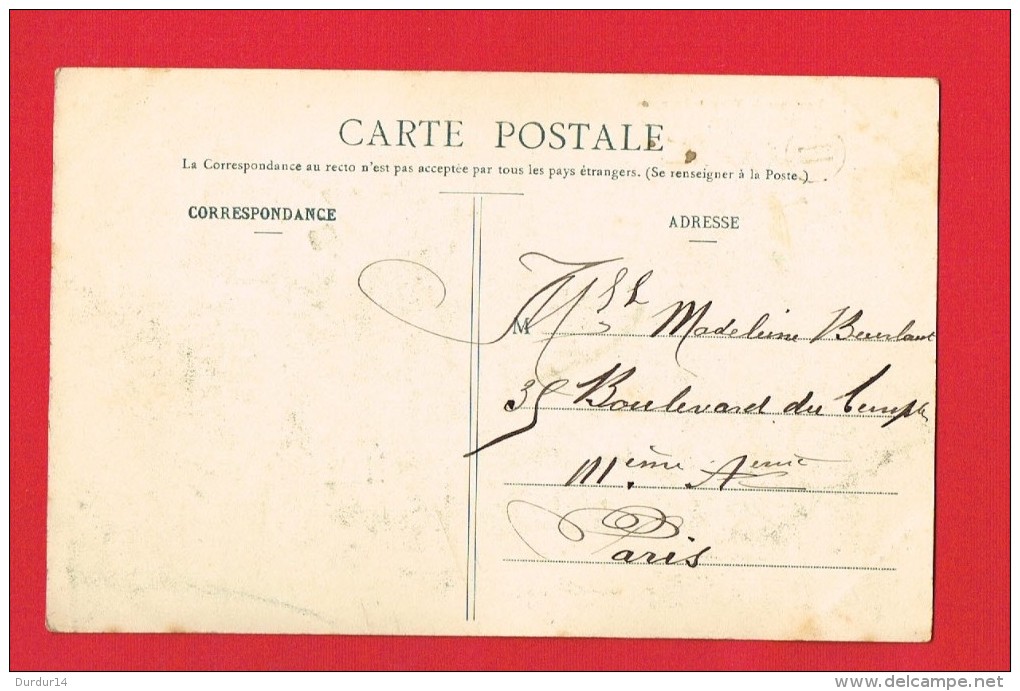 CARTE POSTALE
La Correspondance au recto n'est pas acceptée par tous les pays étrangers. (Se renseigner à la Poste.)
CORRESPONDANCE
ADRESSE
M Mslle Madeleine
35 Boulevard du Temple
IIIème Aème
Paris
Durdur14
delcampe.net